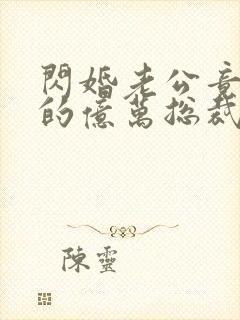 閃婚老公竟
的億萬總裁
陳靈